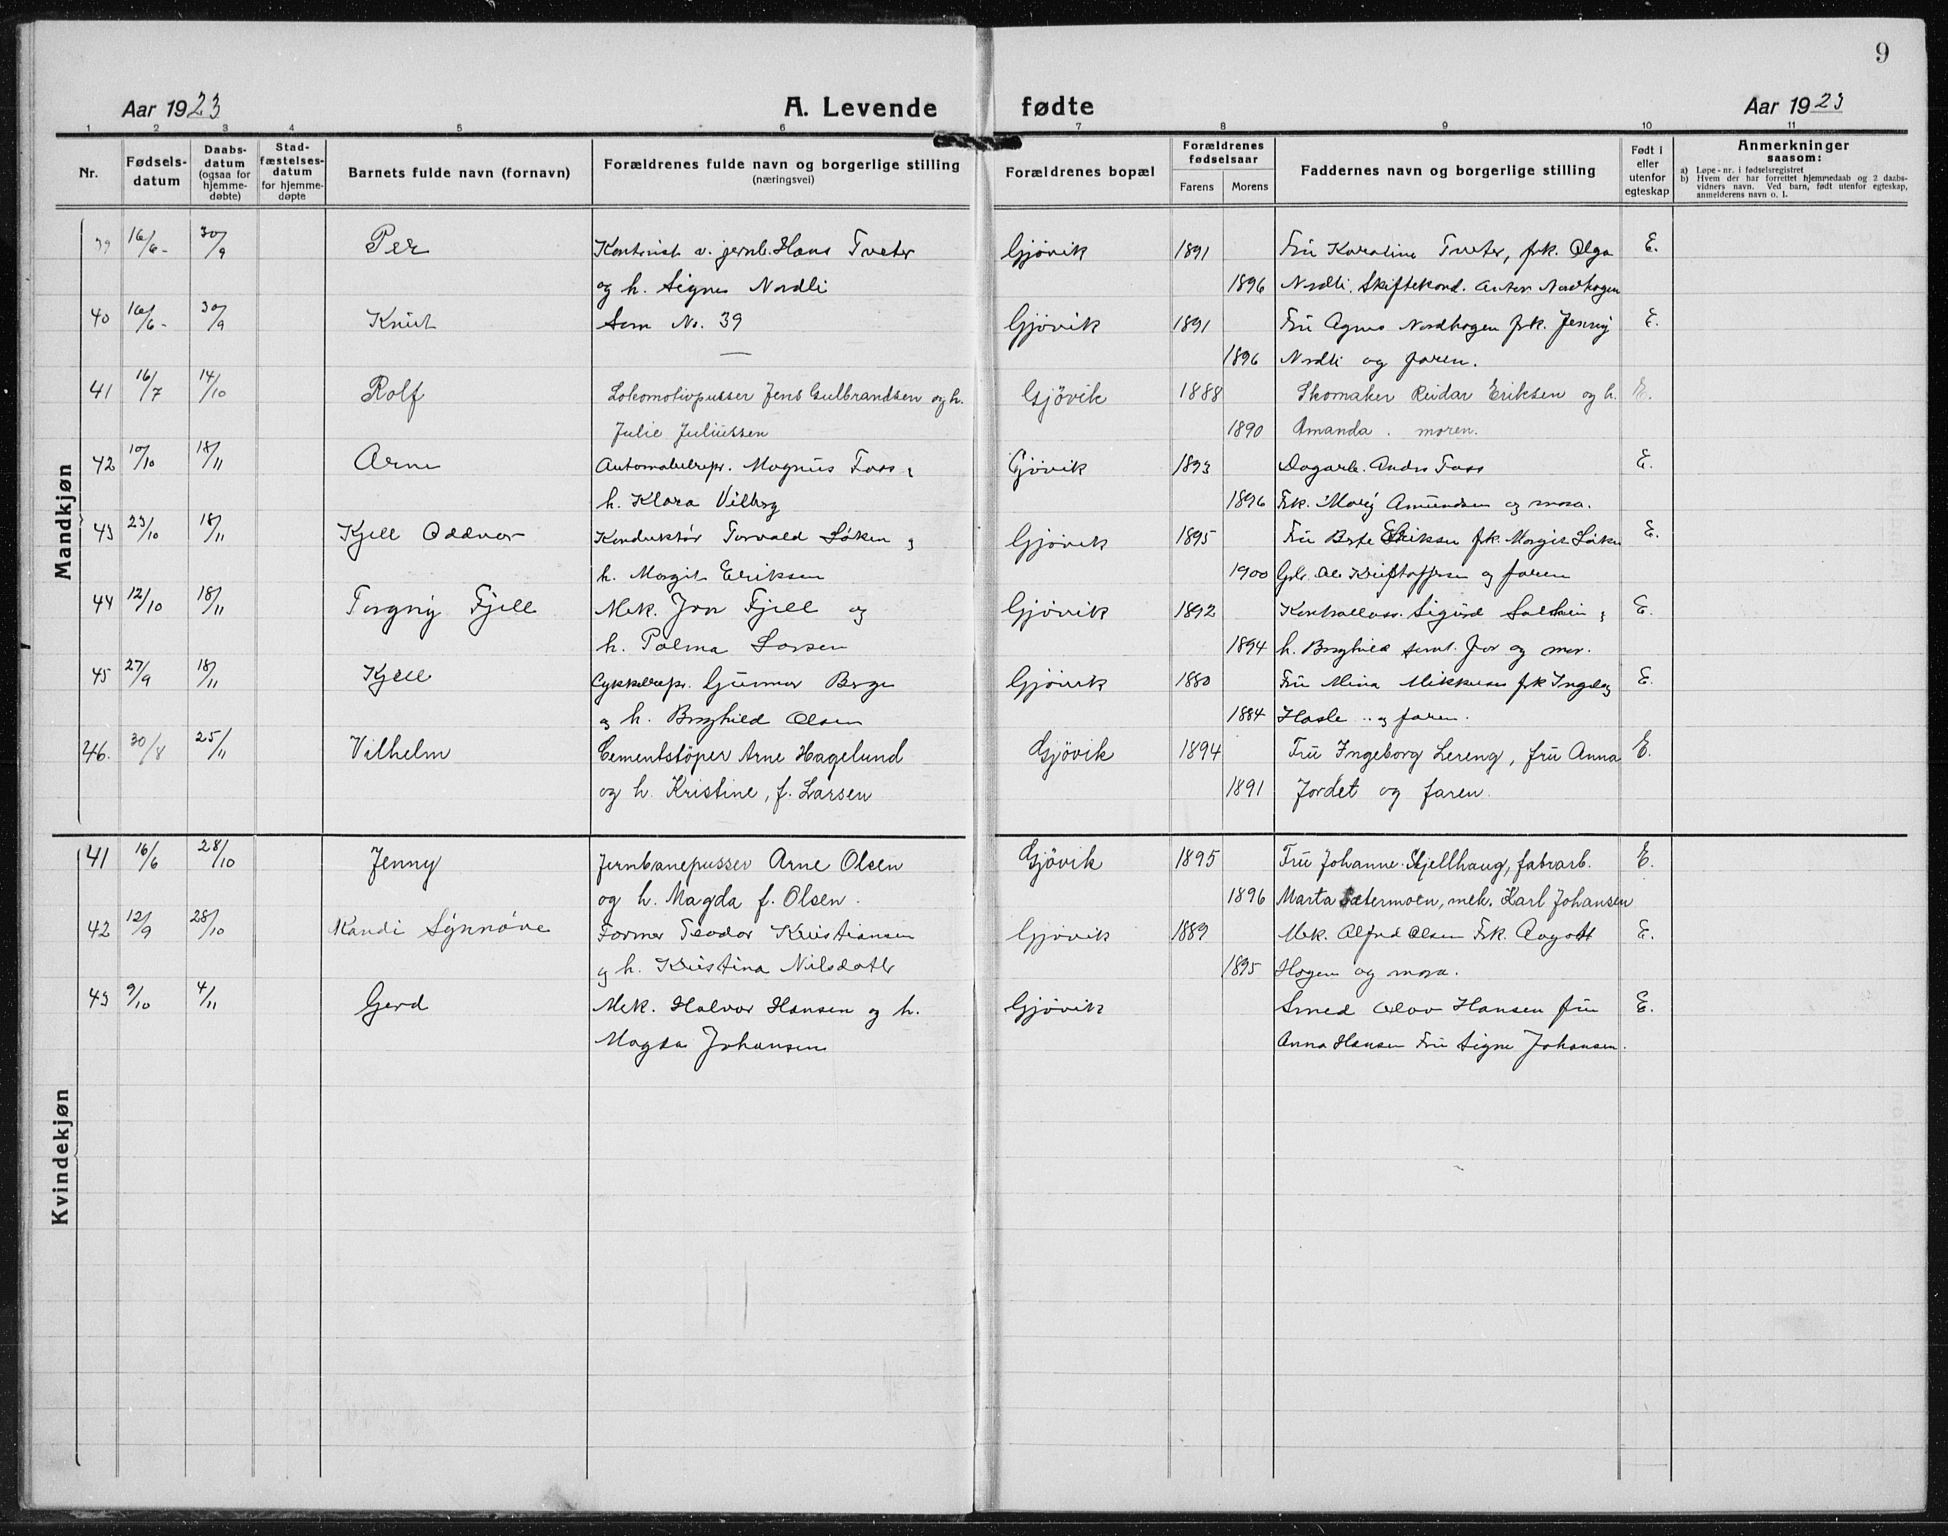 9
Aar 1923 A. Levende fødte Aar 1923
1 2 3 4 5 6 7 8 9 10 11
Nr.
Fødsels-
datum
Daabs-
datum
(ogsaa for
hjemme-
døbte)
Stad-
fæstelses-
datum
for hjemme-
døpte
Barnets fulde navn (fornavn)
Forældrenes fulde navn og borgerlige stilling
(næringsvei)
Forældrenes bopæl
Forældrenes
fødselsaar
Farens Morens
Faddernes navn og borgerlige stilling
Født i
eller
utenfor
egteskap
Anmerkninger
saasom:
a) Løpe-nr. i fødselsregistret
b) Hvem der har forrettet hjemmedaab og 2 daabs-
vidners navn. Ved barn, født utenfor egteskap,
anmelderens navn o. l.
Mandkjøn
39 16/6 - 30/9 Per Kontorist v. jernb. Hans Tveter Gjøvik 1891 Fru Karoline Tveter, frk. Olga E.
og h. Signe Nordli 1896 Nordli. Skiftekond. Anton Nordhagen
40 16/6 - 30/9 Knut Som No. 39 Gjøvik 1891 Fru Agnes Nordhagen frk. Jenny E.
1896 Nordli og faren.
41 16/7 14/10 Rolf Lokomotivpusser Jens Gulbrandsen og h. Gjøvik 1888 Skomaker Reidar Eriksen og h. E.
Julie Juliussen 1890 Amanda. moren.
42 10/10 18/11 Arne Automobilrepr. Magnus Foss & Gjøvik 1893 Dagarb. Anders Foss E.
h. Klara Vilberg 1896 Frk. Marij Amundsen og mora.
43 23/10 18/11 Kjell Oddvar Konduktør Torvald Løken & Gjøvik 1895 Fru Berte Eriksen frk. Margit Løken E.
h. Margit Eriksen 1900 Gbr. Ole Kristoffersen og faren
44 12/10 18/11 Torgny Fjell Mek. Jon Fjell og Gjøvik 1892 Kontrollass. Sigurd & E.
h. Palma Larsen 1894 h. Borghild samt. far og mor.
45 27/9 18/11 Kjell Cykkelrepr. Gunnar Berge Gjøvik 1880 Fru Mina Mikkelsen frk Ingeborg E.
og h. Borghild Olsen 1884 Hasle og faren.
46. 30/8 25/11 Vilhelm Cementstøper Arne Hagelund Gjøvik 1894 Fru Ingeborg Lereng, fru Anna E.
og h. Kristine, f. Larsen 1891 Jordet og faren.
Kvindekjøn
41 16/6 28/10 Jenny Jernbanepusser Arne Olsen Gjøvik 1895 Fru Johanne Skjellhaug, fabrarb. E.
og h. Magda f. Olsen. 1896 Marta Sætermoen, mek. Karl Johansen
42 12/9 28/10 Randi Synnøve Former Teodor Kristiansen Gjøvik 1889 Mek. Alfred Olsen Frk. Aagott E.
og h. Kristina Nilsdatter 1895 Hagen og mora.
43 9/10 4/11 Gerd Mek. Halvor Hansen og h. Gjøvik Smed Olav Hansen fru E.
Magda Johansen Anna Hansen Fru Signe Johansen.